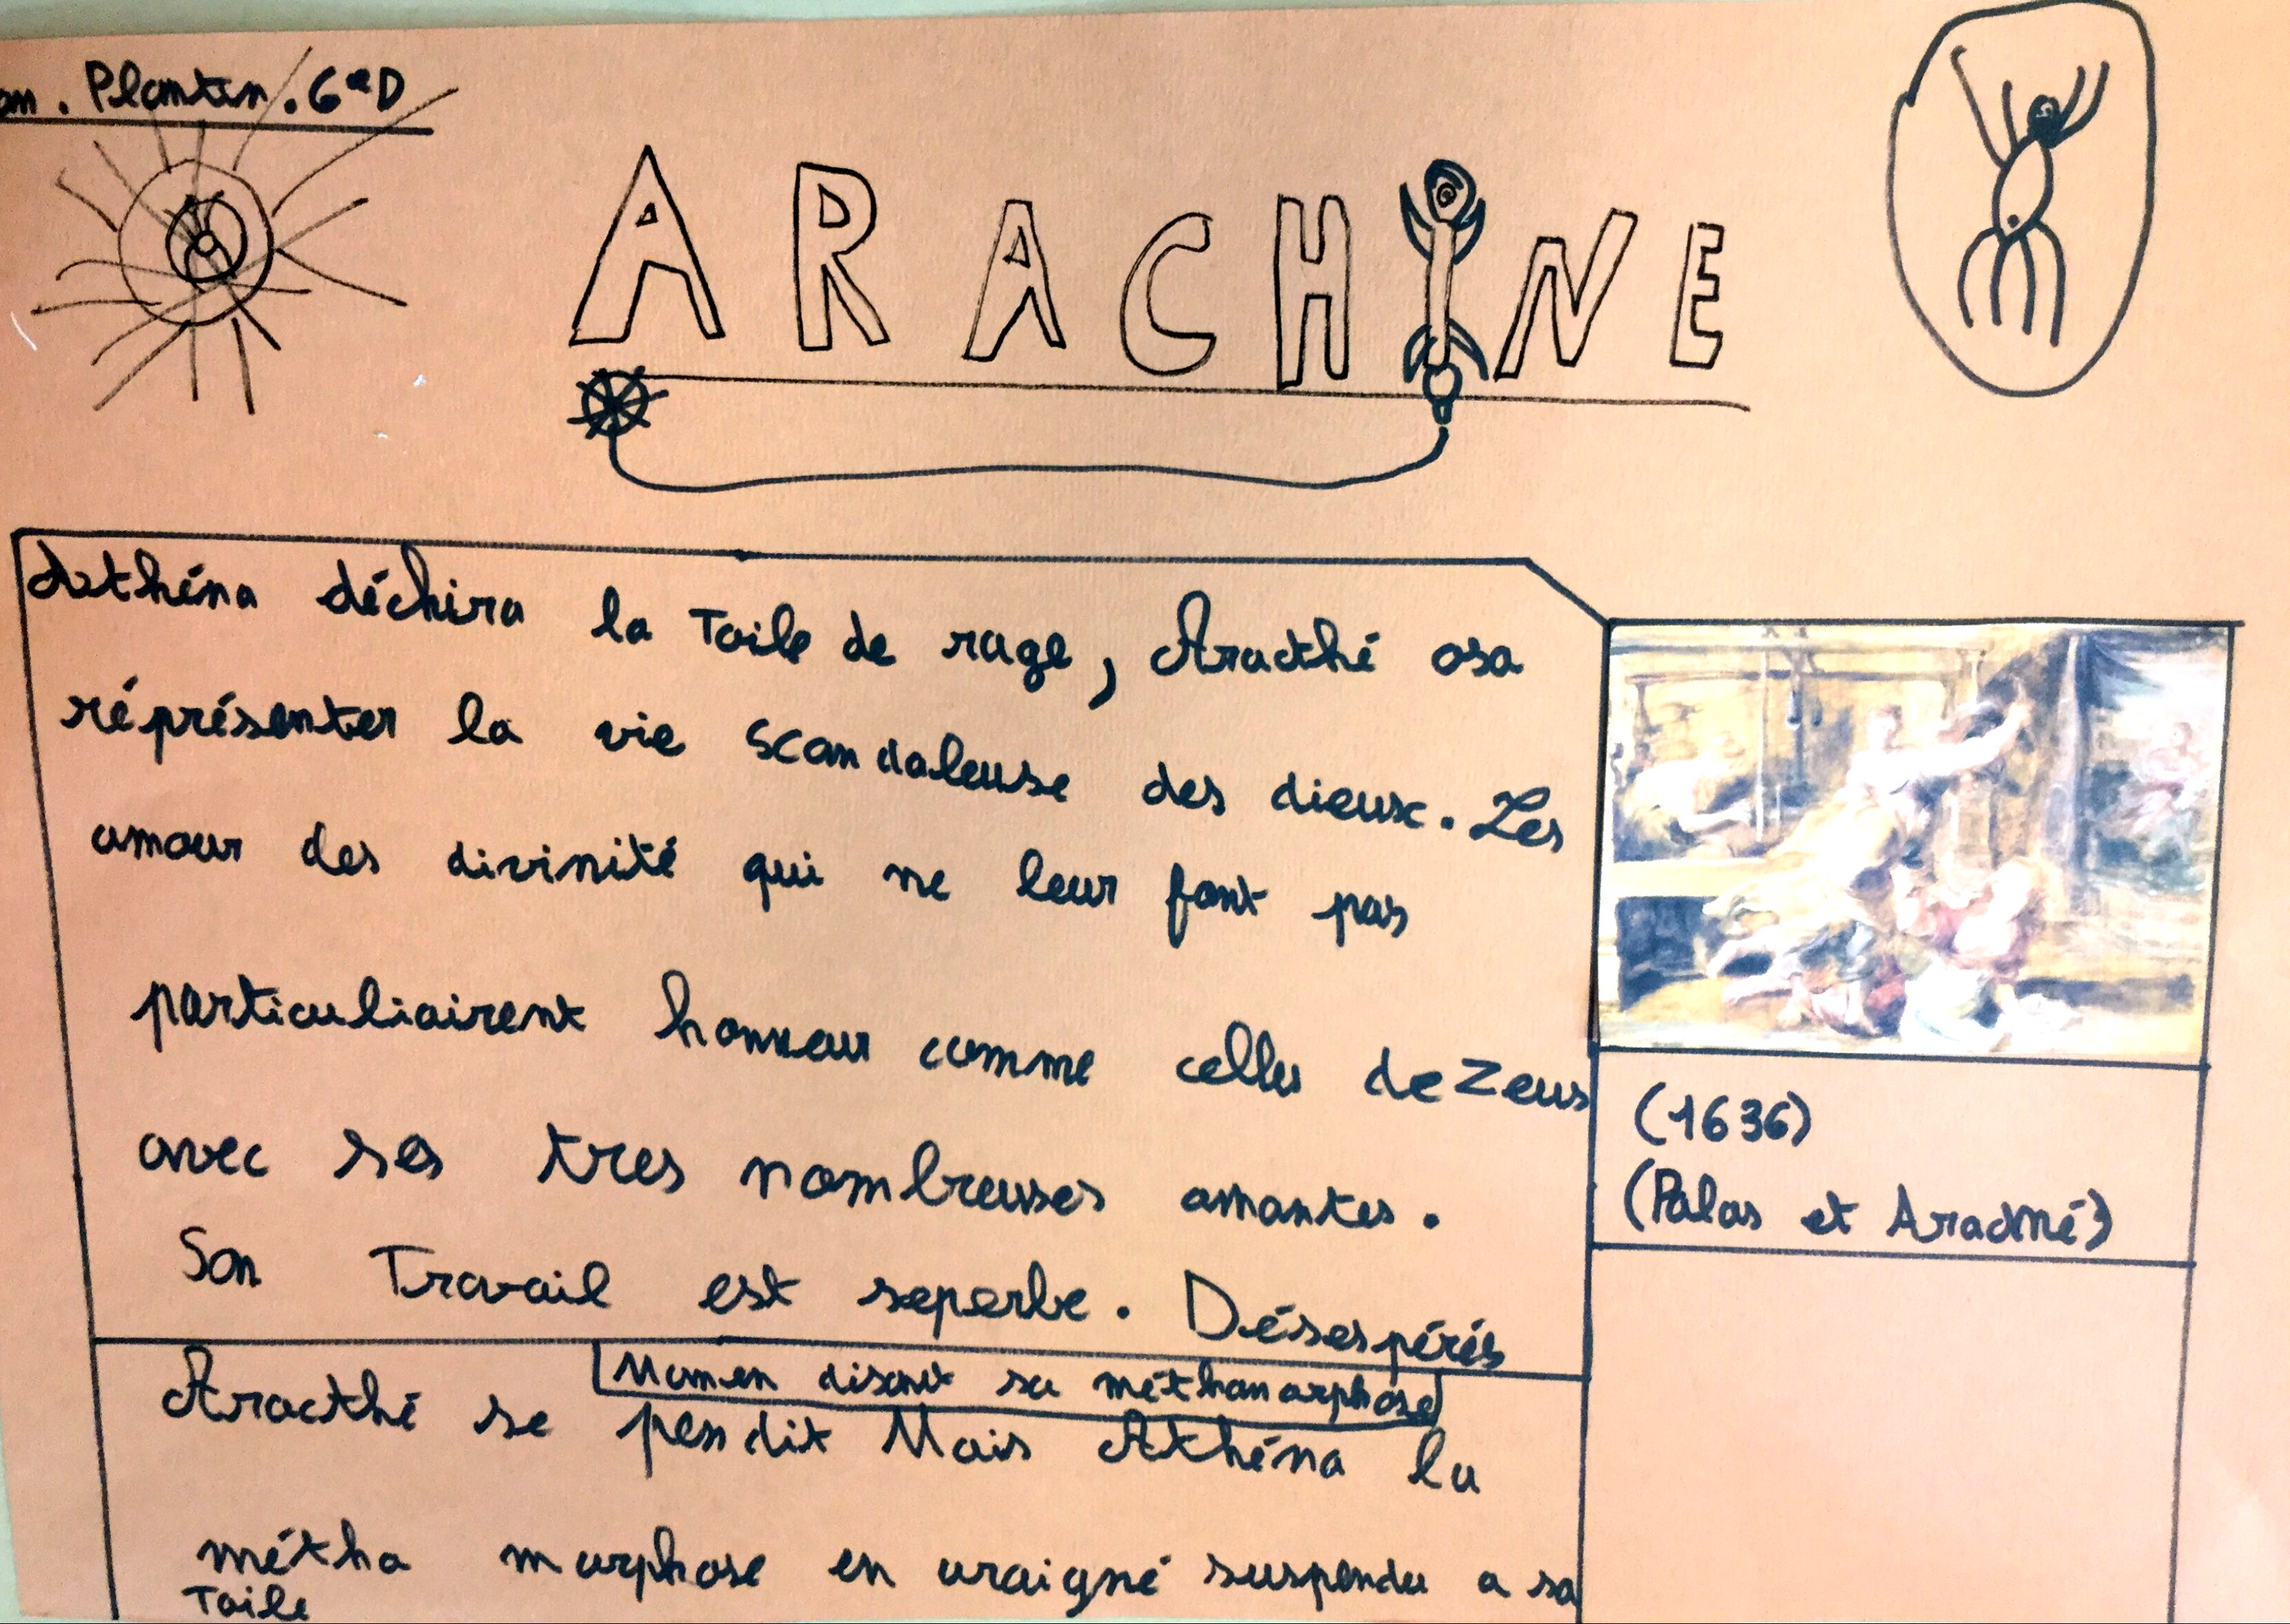 Plantin. 6eD
ARACHINE
Athéna déchira la Toile de rage, Aracthé osa
réprésenter la vie scandaleuse des dieux. Les
amour des divinité qui ne leur font pas
particuliairent honneur comme celles de Zeus
avec ses tres nombreuses amantes.
Son Travail est seperbe. Désespérés
Momen disant sa méthamorphose
Aracthé se pendit Mais Athéna la
métha morphose en araigné suspendu a sa
Toile
(1636)
(Palas et Aracné)